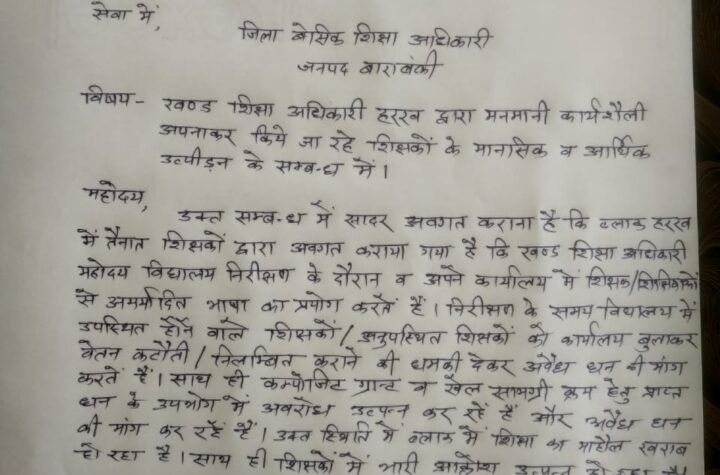 सेवा में,
जिला बेसिक शिक्षा अधिकारी
जनपद बाराबंकी
विषय- खण्ड शिक्षा अधिकारी हरख द्वारा मनमानी कार्यशैली
अपनाकर किये जा रहे शिक्षकों के मानसिक व आर्थिक
उत्पीड़न के सम्बन्ध में।
महोदय,
उक्त सम्बन्ध में सादर अवगत कराना है कि ब्लाक हरख
में तैनात शिक्षकों द्वारा अवगत कराया गया है कि खण्ड शिक्षा अधिकारी
महोदय विद्यालय निरीक्षण के दौरान व अपने कार्यालय में शिक्षक/शिक्षिकाओं
से अमर्यादित भाषा का प्रयोग करते हैं। निरीक्षण के समय विद्यालय में
उपस्थित होने वाले शिक्षकों/अनुपस्थित शिक्षकों को कार्यालय बुलाकर
वेतन कटौती/निलम्बित कराने की धमकी देकर अवैध धन की मांग
करते हैं। साथ ही कम्पोजिट ग्रान्ट व खेल सामग्री क्रय हेतु प्राप्त
धन के उपभोग में अवरोध उत्पन्न कर रहे हैं और अवैध धन
की मांग कर रहे हैं। उक्त स्थिति में ब्लाक में शिक्षा का माहौल खराब
हो रहा है। साथ ही शिक्षकों में भारी आक्रोश